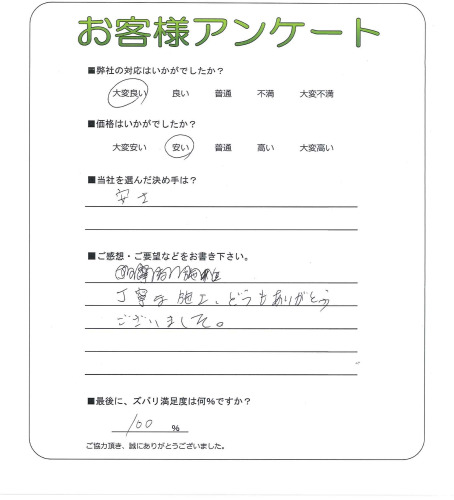 お客様アンケート
■弊社の対応はいかがでしたか？
大変良い 良い 普通 不満 大変不満
■価格はいかがでしたか？
大変安い 安い 普通 高い 大変高い
■当社を選んだ決め手は？
安さ
■ご感想・ご要望などをお書き下さい。
丁寧な施工、どうもありがとう
ございました。
■最後に、ズバリ満足度は何%ですか？
100 %
ご協力頂き、誠にありがとうございました。